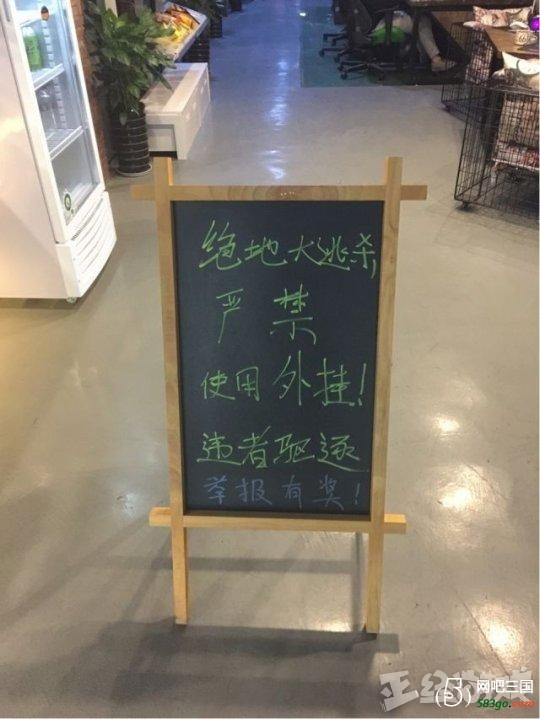 绝地大逃杀,
严禁
使用外挂!
违者驱逐
举报有奖!
网吧三国
583go.com